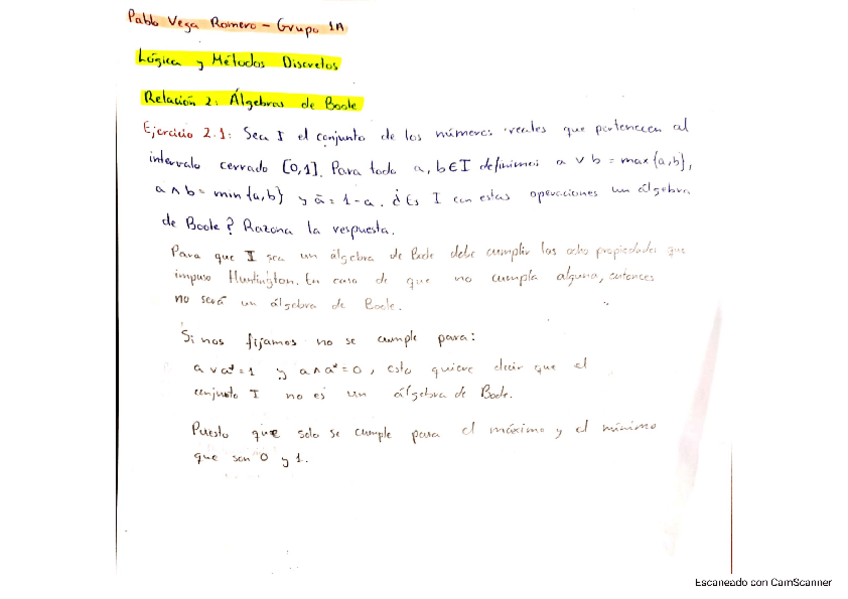 Pablo Vega Romero - Grupo 1A
Lógica y Métodos Discretos
Relación 2: Álgebras de Boole
Ejercicio 2.1: Sea I el conjunto de los números reales que pertenecen al
intervalo cerrado [0,1]. Para todo a, b ∈ I definimos a ∨ b = max{a,b},
a ∧ b = min{a,b} y ā = 1-a. ¿Es I con estas operaciones un álgebra
de Boole? Razona la respuesta.
Para que I sea un álgebra de Boole debe cumplir las ocho propiedades que
impuso Huntington. En caso de que no cumpla alguna, entonces
no será un álgebra de Boole.
Si nos fijamos no se cumple para:
a ∨ a'=1 y a ∧ a'=0, esto quiere decir que el
conjunto I no es un álgebra de Boole.
Puesto que solo se cumple para el máximo y el mínimo
que son 0 y 1.
Escaneado con CamScanner